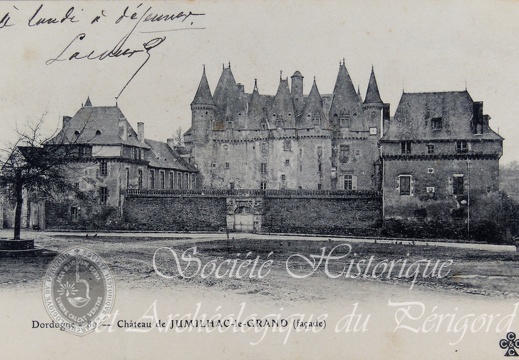 à lundi à déjeuner
Société Historique
et Archéologique du Périgord
Dordogne
Château de JUMILHAC-le-GRAND (façade)